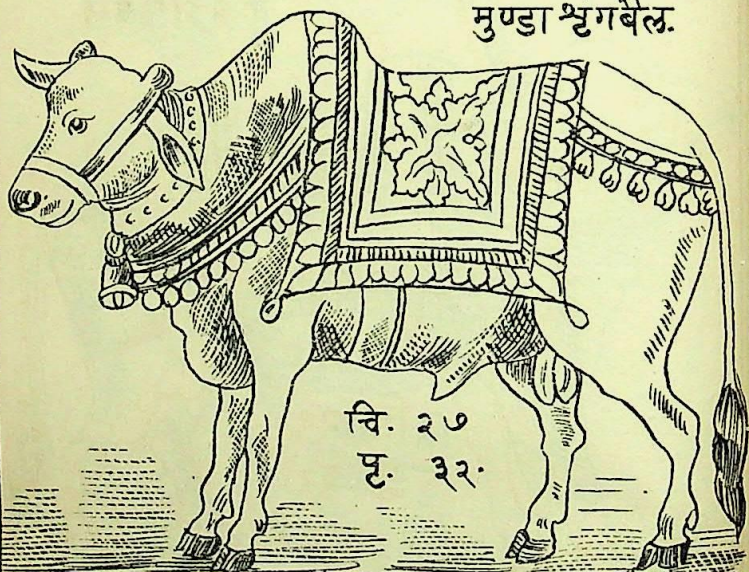 मुण्डा श्रृगबैल.
चि. २७
पृ. ३२.